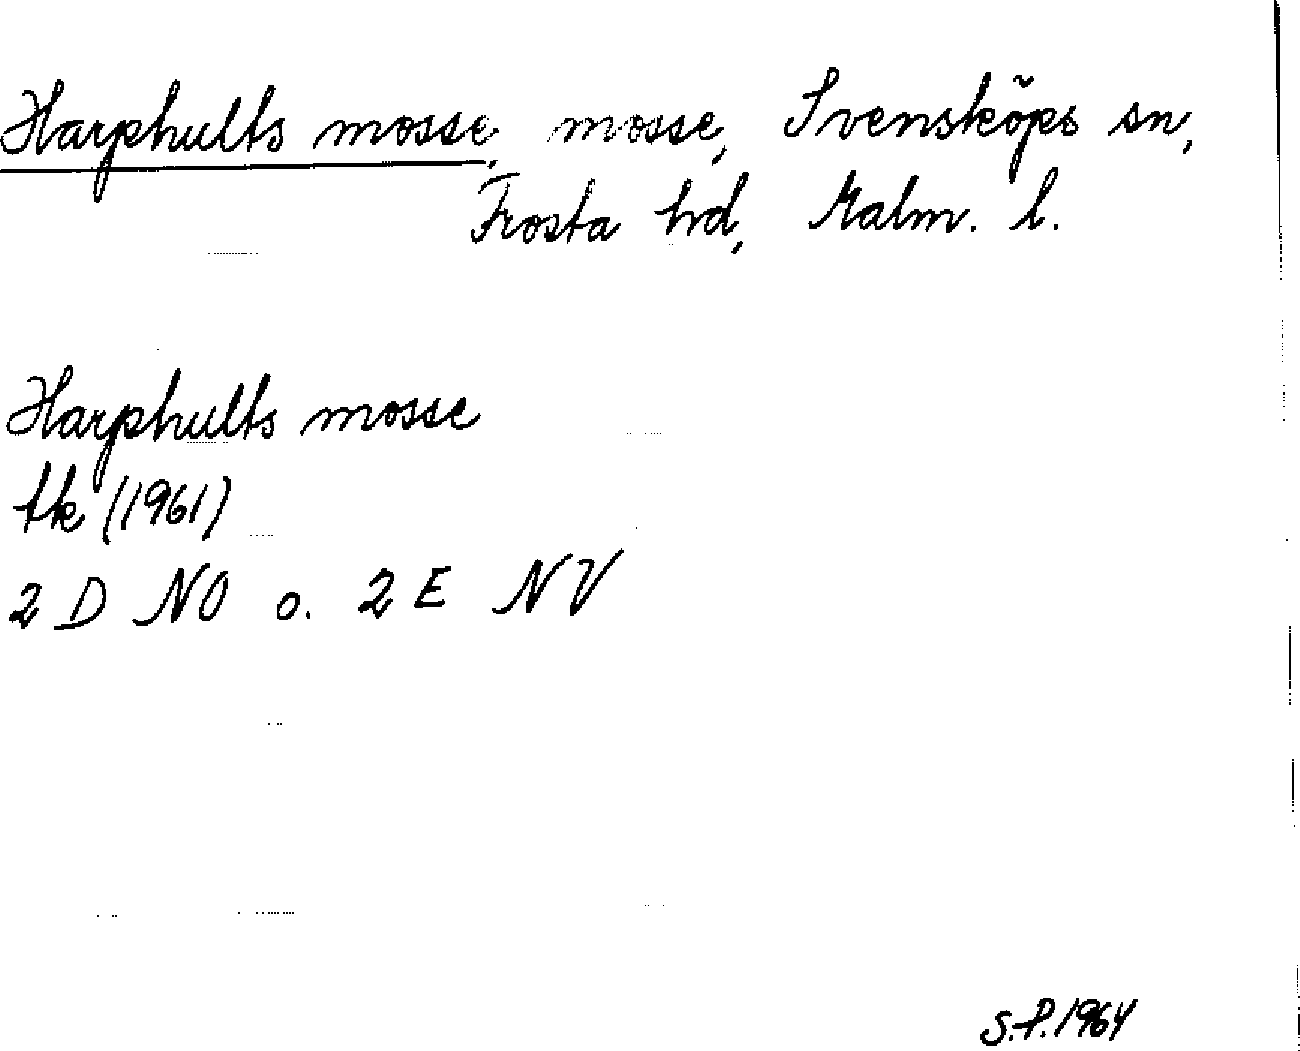 Harphults mosse, mosse, Svensköps sn,
Frosta hd, Malm. l.
Harphults mosse
tk (1961)
2 D NO o. 2 E NV
S.P. 1964